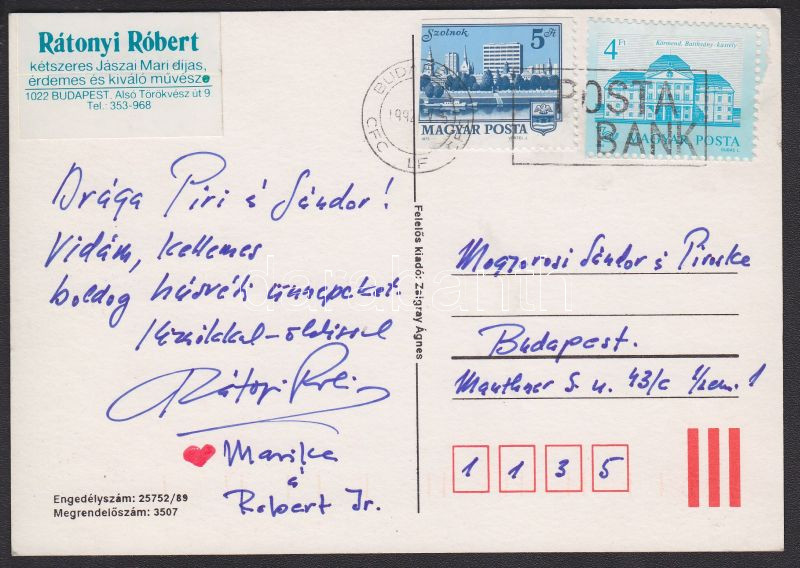 Rátonyi Róbert
kétszeres Jászai Mari díjas,
érdemes és kiváló művésze
1022 BUDAPEST, Alsó Törökvész út 9
Tel.: 353-968
Szolnok
5 Ft
MAGYAR POSTA
4 Ft
Körmend, Batthyány-kastély
MAGYAR POSTA
BUDAPEST
CFC LF CFC
POSTA
BANK
Drága Piri és Sándor!
Vidám, kellemes
boldog húsvéti ünnepeket
Rátonyi Robi
Marika
és
Robert Jr.
Felelős kiadó: Zalgray Ágnes
Mogyorosi Sándor és Piroske
Budapest.
Mauthner S. u. 43/c I/em. 1
1 1 3 5
Engedélyszám: 25752/89
Megrendelőszám: 3507